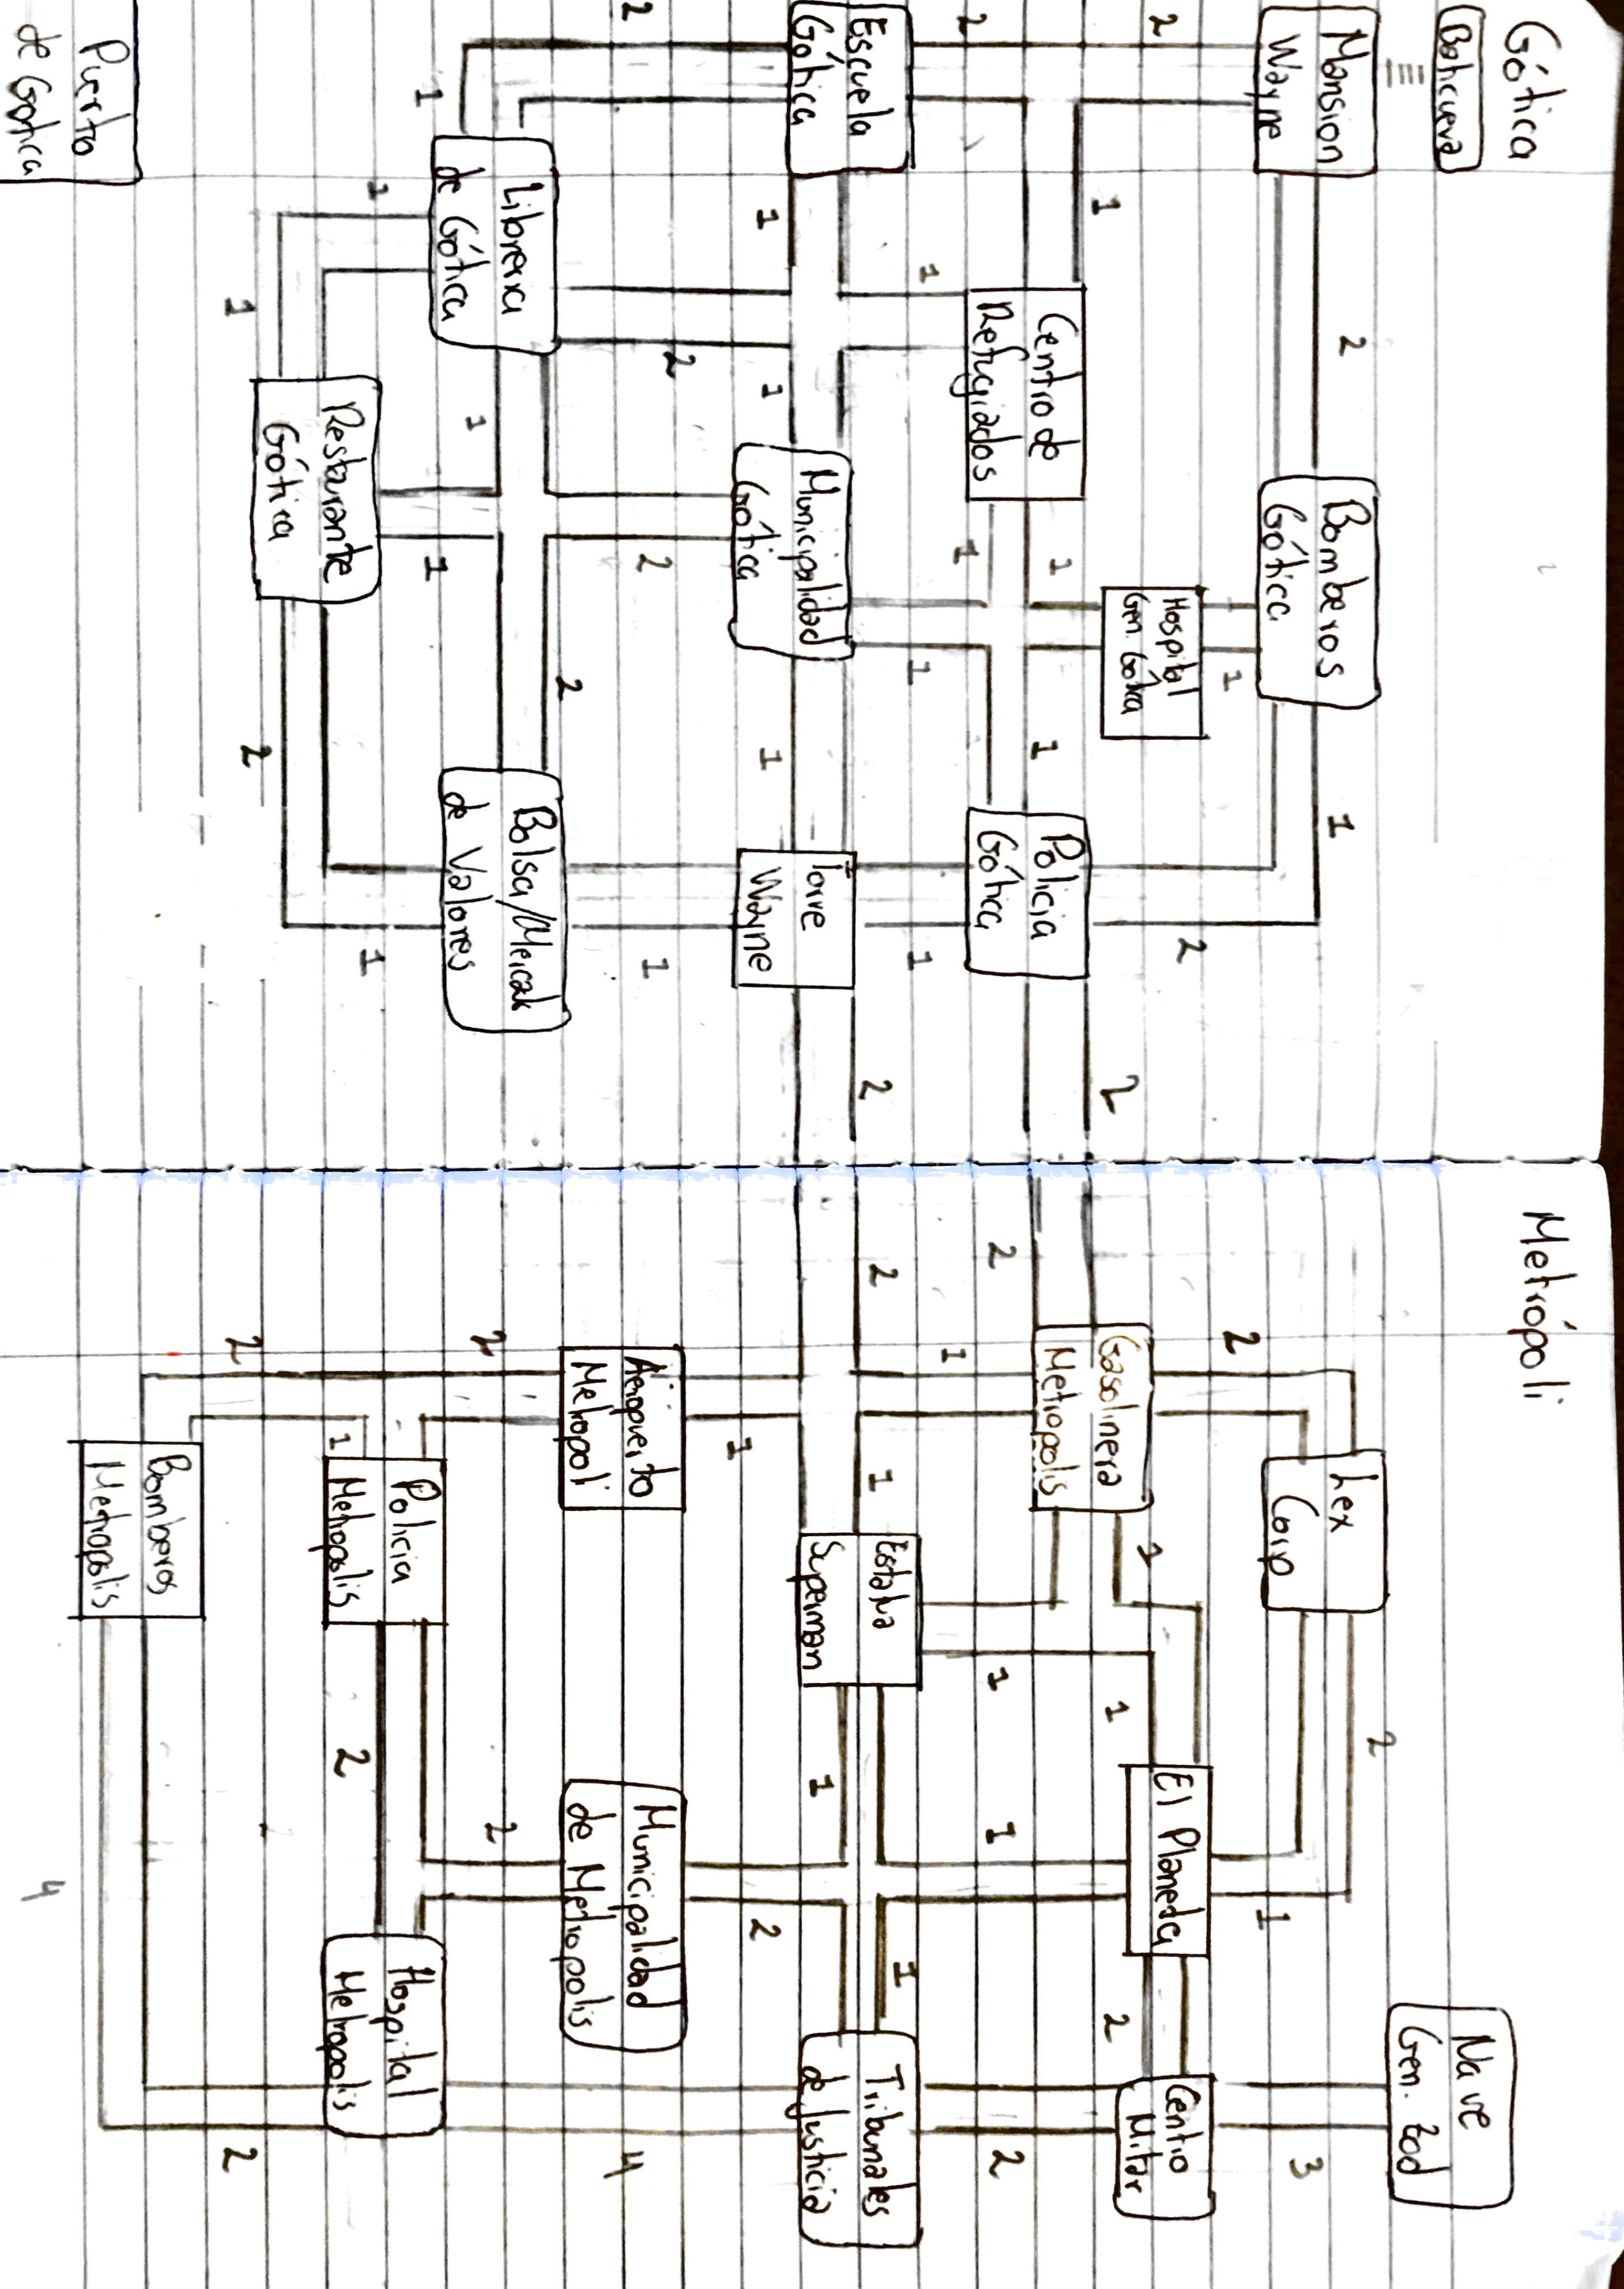 Gótica
Baticueva
Mansion
Wayne
2
Bomberos
Gótica
1
1
2
2
Hospital
Gen. Gótica
1
Centro de
Refugiados
1
1
1
Policia
Gótica
2
2
1
1
1
Escuela
Gótica
Municipalidad
Gótica
Torre
Wayne
2
1
1
1
2
2
2
1
2
Libreria
de Gótica
1
1
1
Bolsa/Mercado
de Valores
1
1
Resturante
Gótica
1
2
Puerto
de Gotica
Metrópoli
Nave
Gen. Zod
3
Lex
Corp
2
1
2
El Planeta
Centro
2
Gasolinera
Metropolis
1
1
2
1
1
1
2
2
1
Estatua
Superman
1
1
Tribunales
de Justicia
2
1
Aeropuerto
Metropoli
Municipalidad
de Metropolis
4
2
2
Policia
Metropolis
1
2
Hospital
Metropolis
2
2
Bomberos
Metropolis
4